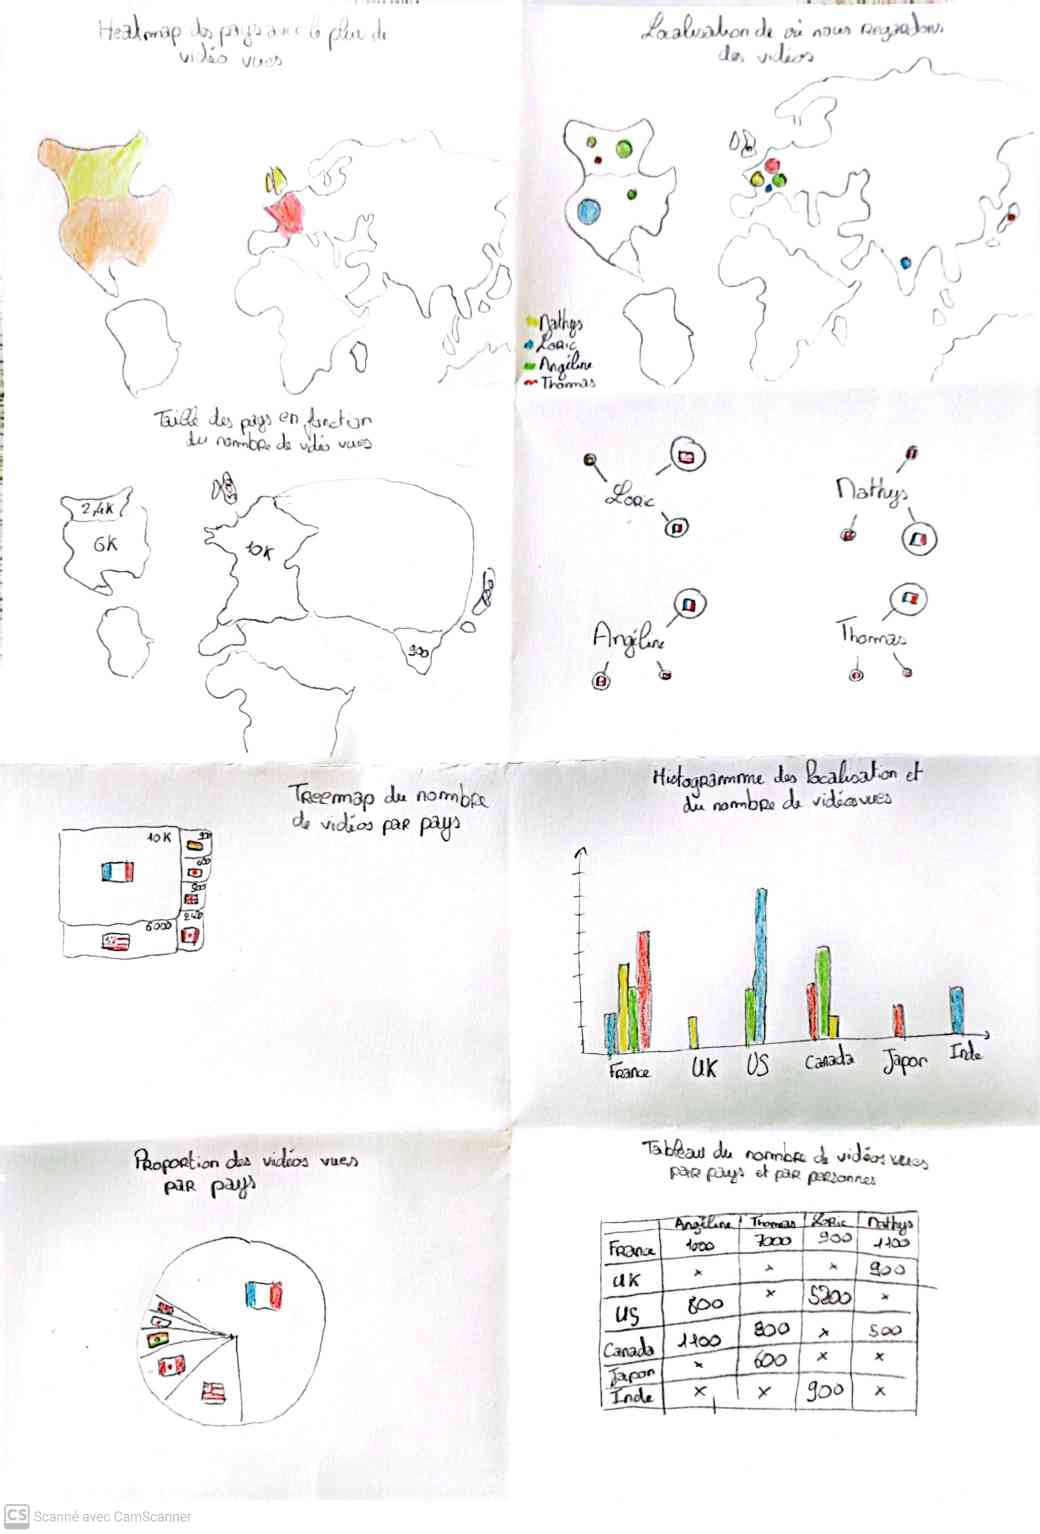 Heatmap des pays avec le plus de
vidéo vues
Localisation de où nous regardons
des vidéos
Nathys
Loric
Angéline
Thomas
Taille des pays en fonction
du nombre de vidéo vues
2,4K
6K
10K
900
Loric
Nathys
Angéline
Thomas
Treemap du nombre
de vidéos par pays
10K
6000
Histogramme des localisation et
du nombre de vidéos vues
France
UK
US
Canada
Japon
Inde
Proportion des vidéos vues
par pays
Tableau du nombre de vidéos vues
par pays et par personnes
Angéline Thomas Loric Nathys
France 1000 7000 900 1100
UK x x x 900
US 800 x 5200 x
Canada 1100 800 x 500
Japon x 600 x x
Inde x x 900 x
CS Scanné avec CamScanner